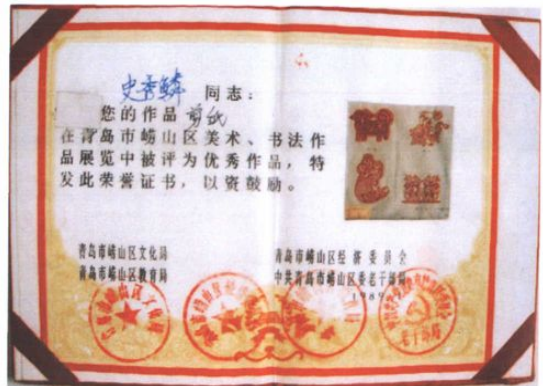 史秀鳞 同志：
您的作品 剪纸
在青岛市崂山区美术、书法作
品展览中被评为优秀作品，特
发此荣誉证书，以资鼓励。
青岛市崂山区文化局
青岛市崂山区教育局
青岛市崂山区经济委员会
中共青岛市崂山区委老干部局